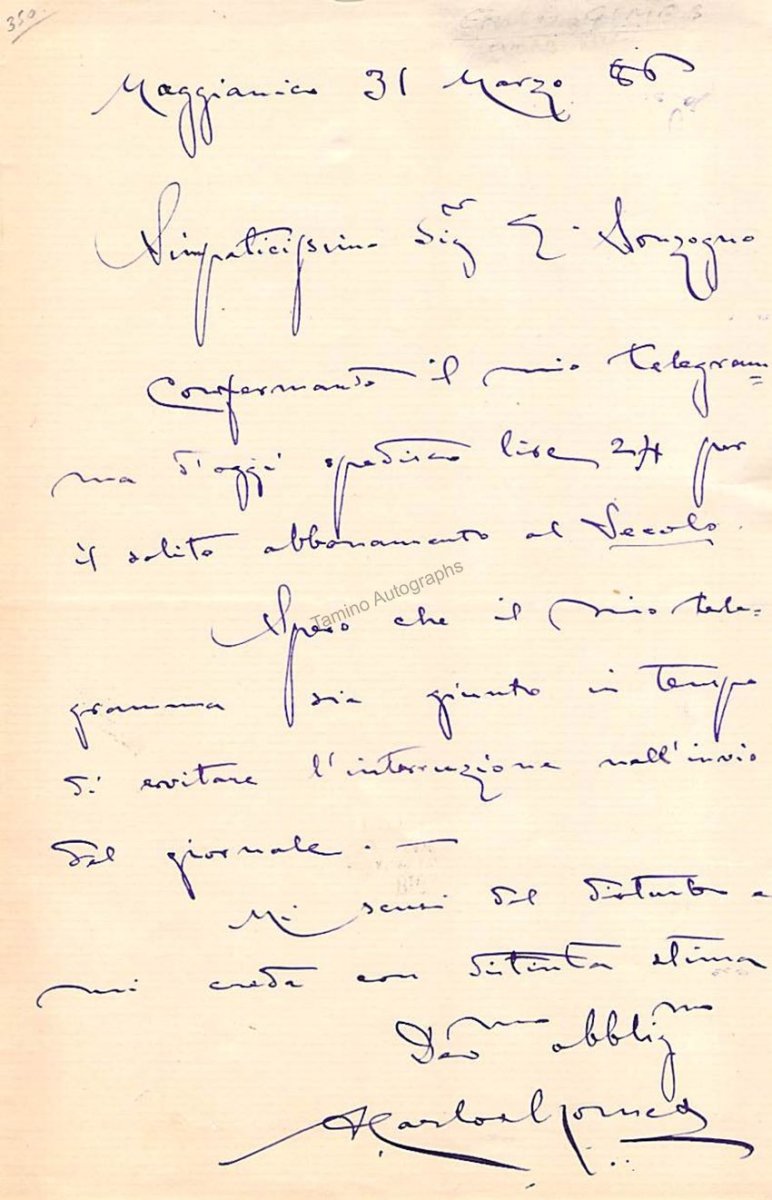 350.
Maggianico 31 Marzo 86
Simpaticissimo Sigr E. Sonzogno
Confermando il mio telegram=
ma d'oggi spedisco lire 24 per
il solito abbonamento al Secolo.
Spero che il mio tele=
gramma sia giunto in tempo
di evitare l'interruzione nell'invio
del giornale. —
Mi scusi del disturbo e
mi creda con distinta stima
Devmo obbligmo
A Carlos Gomes
Tamino Autographs